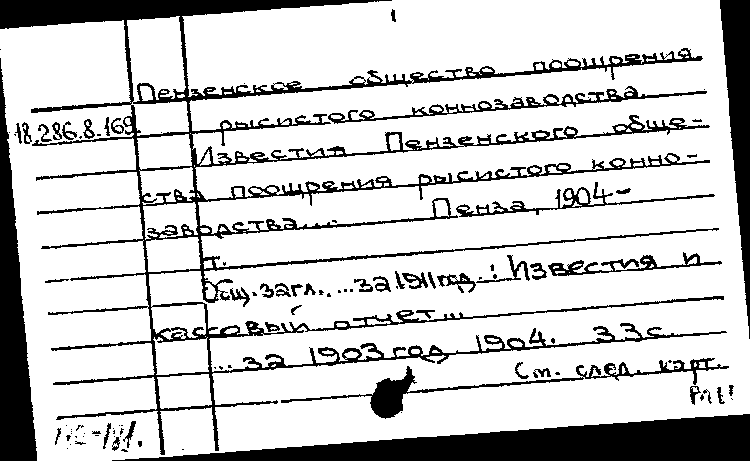 1
Пензенское общество поощрения
18.286.8.169. рысистого коннозаводства.
Известия Пензенского обще-
ства поощрения рысистого конно-
заводства... . Пенза, 1904-
т.
Общ. загл. ... за 1911 год : Известия и
кассовый отчет...
... за 1903 год 1904. 33 с.
См. след. карт.